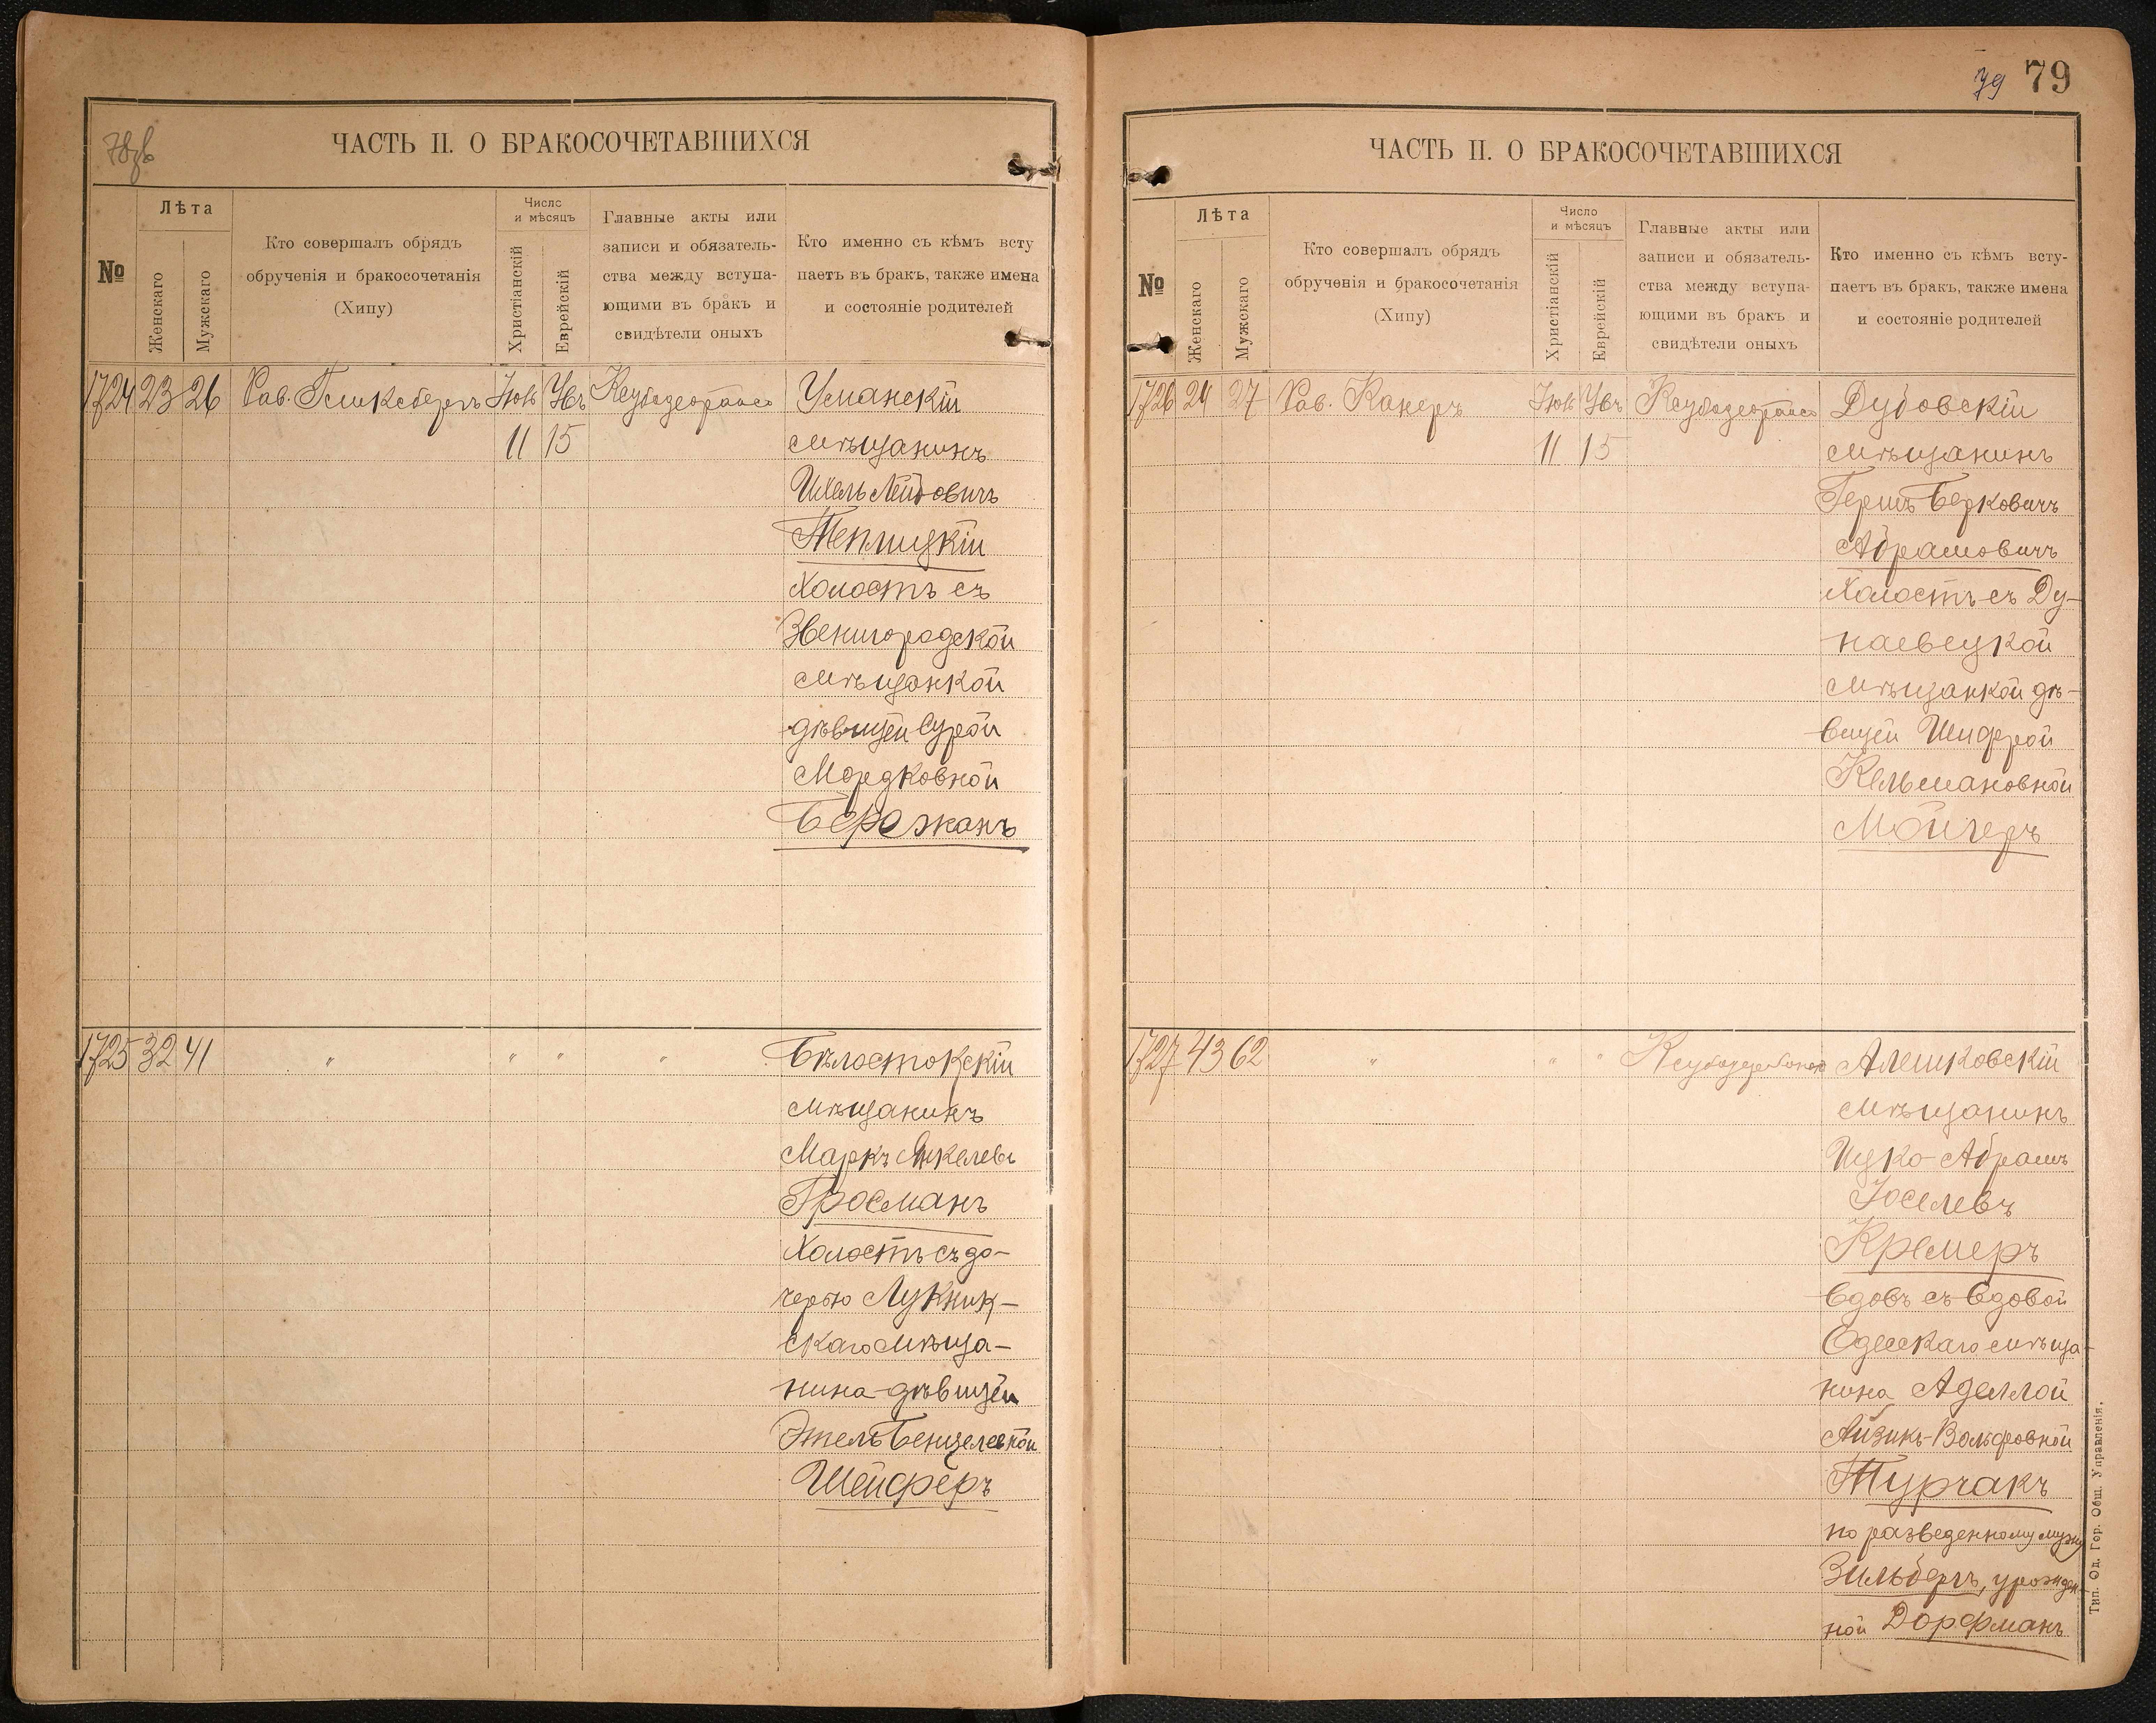 78об
ЧАСТЬ II. О БРАКОСОЧЕТАВШИХСЯ
№
Лѣта
Женскаго
Мужскаго
Кто совершалъ обрядъ
обрученія и бракосочетанія
(Хипу)
Число
и мѣсяцъ
Христіанскій
Еврейскій
Главные акты или
записи и обязатель-
ства между вступа-
ющими въ бракъ и
свидѣтели оныхъ
Кто именно съ кѣмъ всту
паетъ въ бракъ, также имена
и состояніе родителей
1724 23 26 Рав. Гликсбергъ
11 15
Уманскій
мѣщанинъ
Ихель Лейбовичъ
Теплицкій
холостъ съ
Звенигородской
мѣщанкой
дѣвицей Сурой
Мордковной
Бережанъ
1725 32 41 " " " "
Бѣлостокскій
мѣщанинъ
Маркъ Янкелевъ
Гросманъ
холостъ съ до-
черью Лукник-
скаго мѣща-
нина-дѣвицей
Этель Бенцелевной
Шейферъ
79 79
ЧАСТЬ II. О БРАКОСОЧЕТАВШИХСЯ
№
Лѣта
Женскаго
Мужскаго
Кто совершалъ обрядъ
обрученія и бракосочетанія
(Хипу)
Число
и мѣсяцъ
Христіанскій
Еврейскій
Главные акты или
записи и обязатель-
ства между вступа-
ющими въ бракъ и
свидѣтели оныхъ
Кто именно съ кѣмъ всту-
паетъ въ бракъ, также имена
и состояніе родителей
1726 24 27 Рав. Канеръ
11 15
Дубовскій
мѣщанинъ
Гершъ Берковичъ
Абрамовичъ
холостъ съ Ду-
наевецкой
мѣщанкой дѣ-
вицей Шифрой
Кельмановной
Мойчеръ
1727 43 62 " " "
Алешковскій
мѣщанинъ
Ицко-Абрамъ
Іоселевъ
Кремеръ
вдовъ съ вдовой
Одесскаго мѣща-
нина Аделлой
Айзикъ-Вольфовной
Турчакъ
по разведенному мужу
Зильберъ, урожден-
ной Дорфманъ
Тип. Од. Гор. Общ. Управленія.